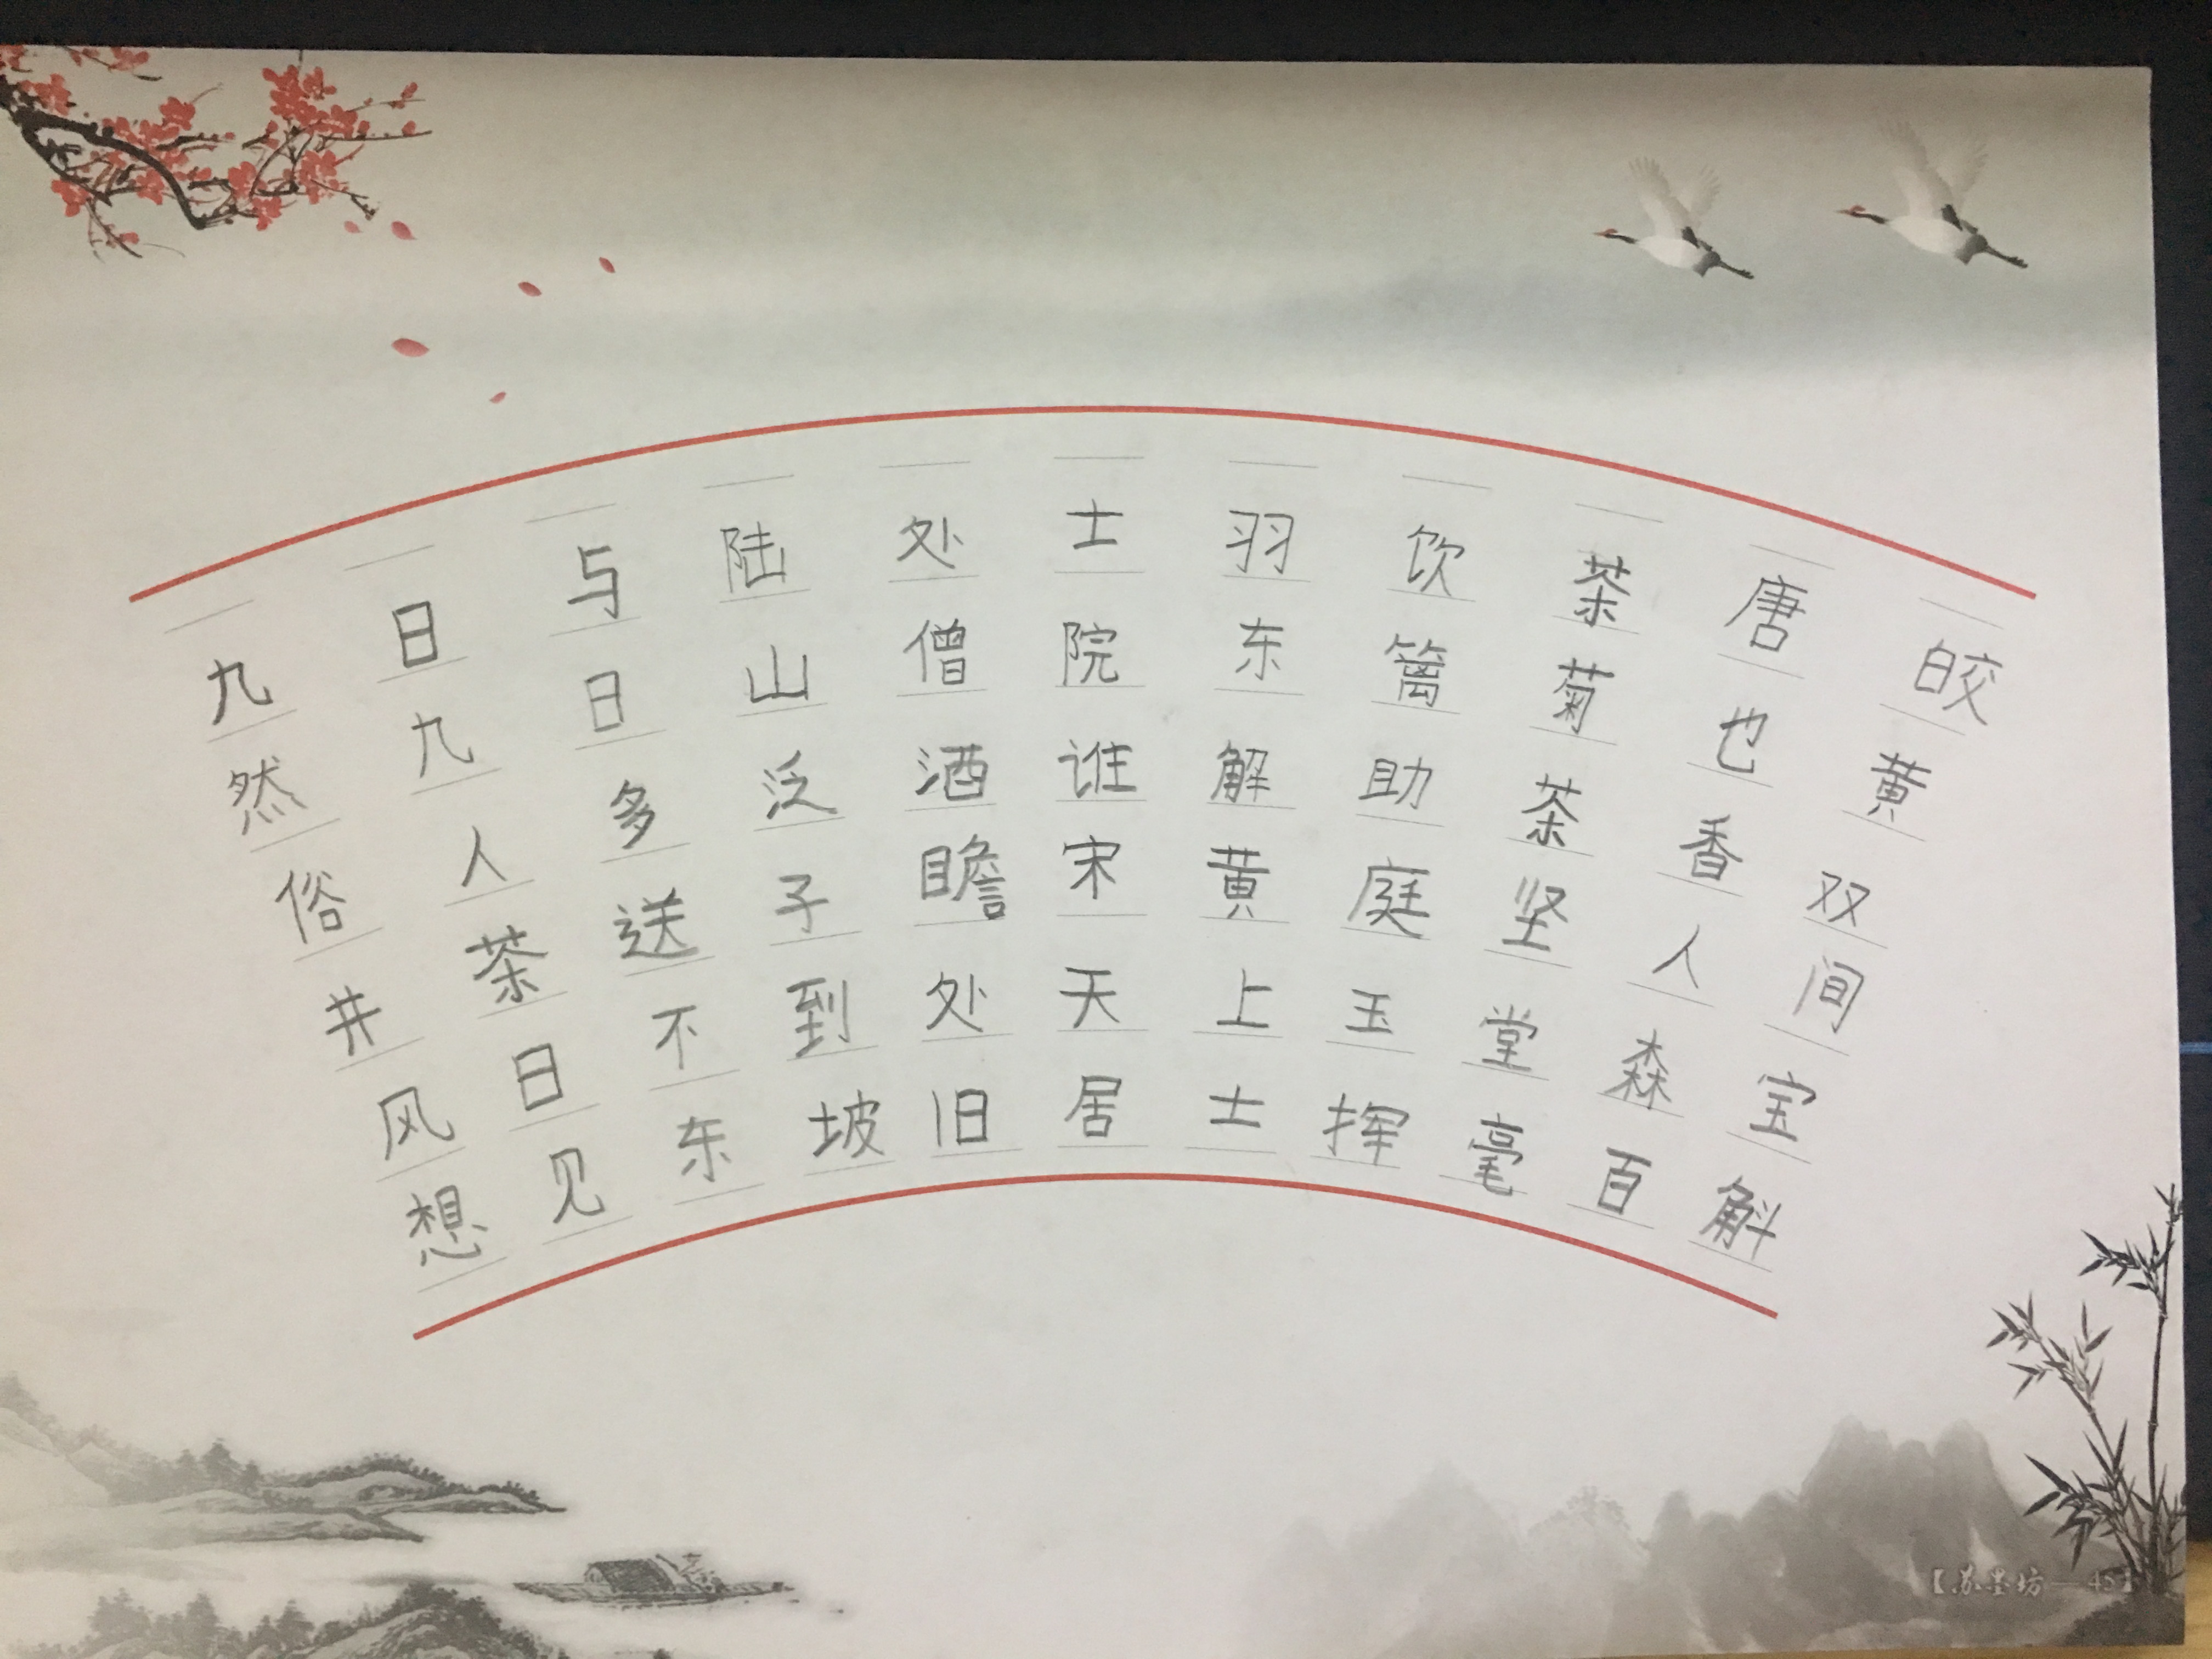 九日与陆处士羽饮茶唐皎
然九日山僧院东篱菊也黄
俗人多泛酒谁解助茶香双
井茶送子瞻宋黄庭坚人间
风日不到处天上玉堂森宝
想见东坡旧居士挥毫百斛
【苏墨坊—45】